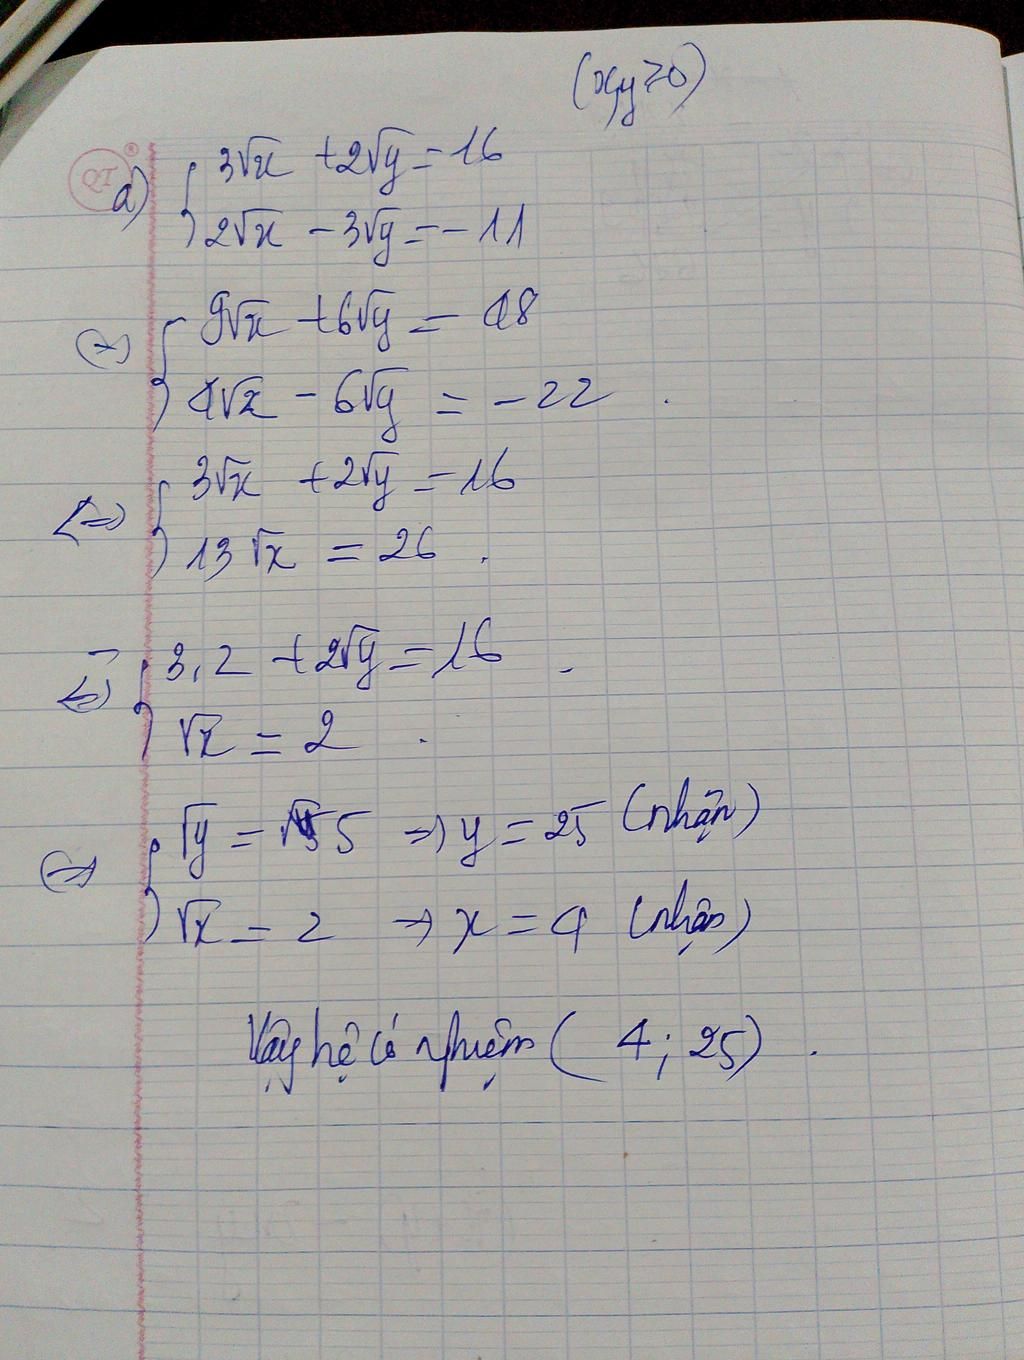 (x,y≥0)
QT®
a) { 3√x +2√y = 16
2√x - 3√y = - 11
(=) { 9√x +6√y = 48
4√x - 6√y = - 22 .
(=) { 3√x +2√y = 16
13√x = 26 .
(=) { 3.2 +2√y = 16 .
√x = 2 .
(=) { √y = 5 => y = 25 (nhận)
√x = 2 => x = 4 (nhận)
Vậy hệ có nghiệm ( 4 ; 25) .